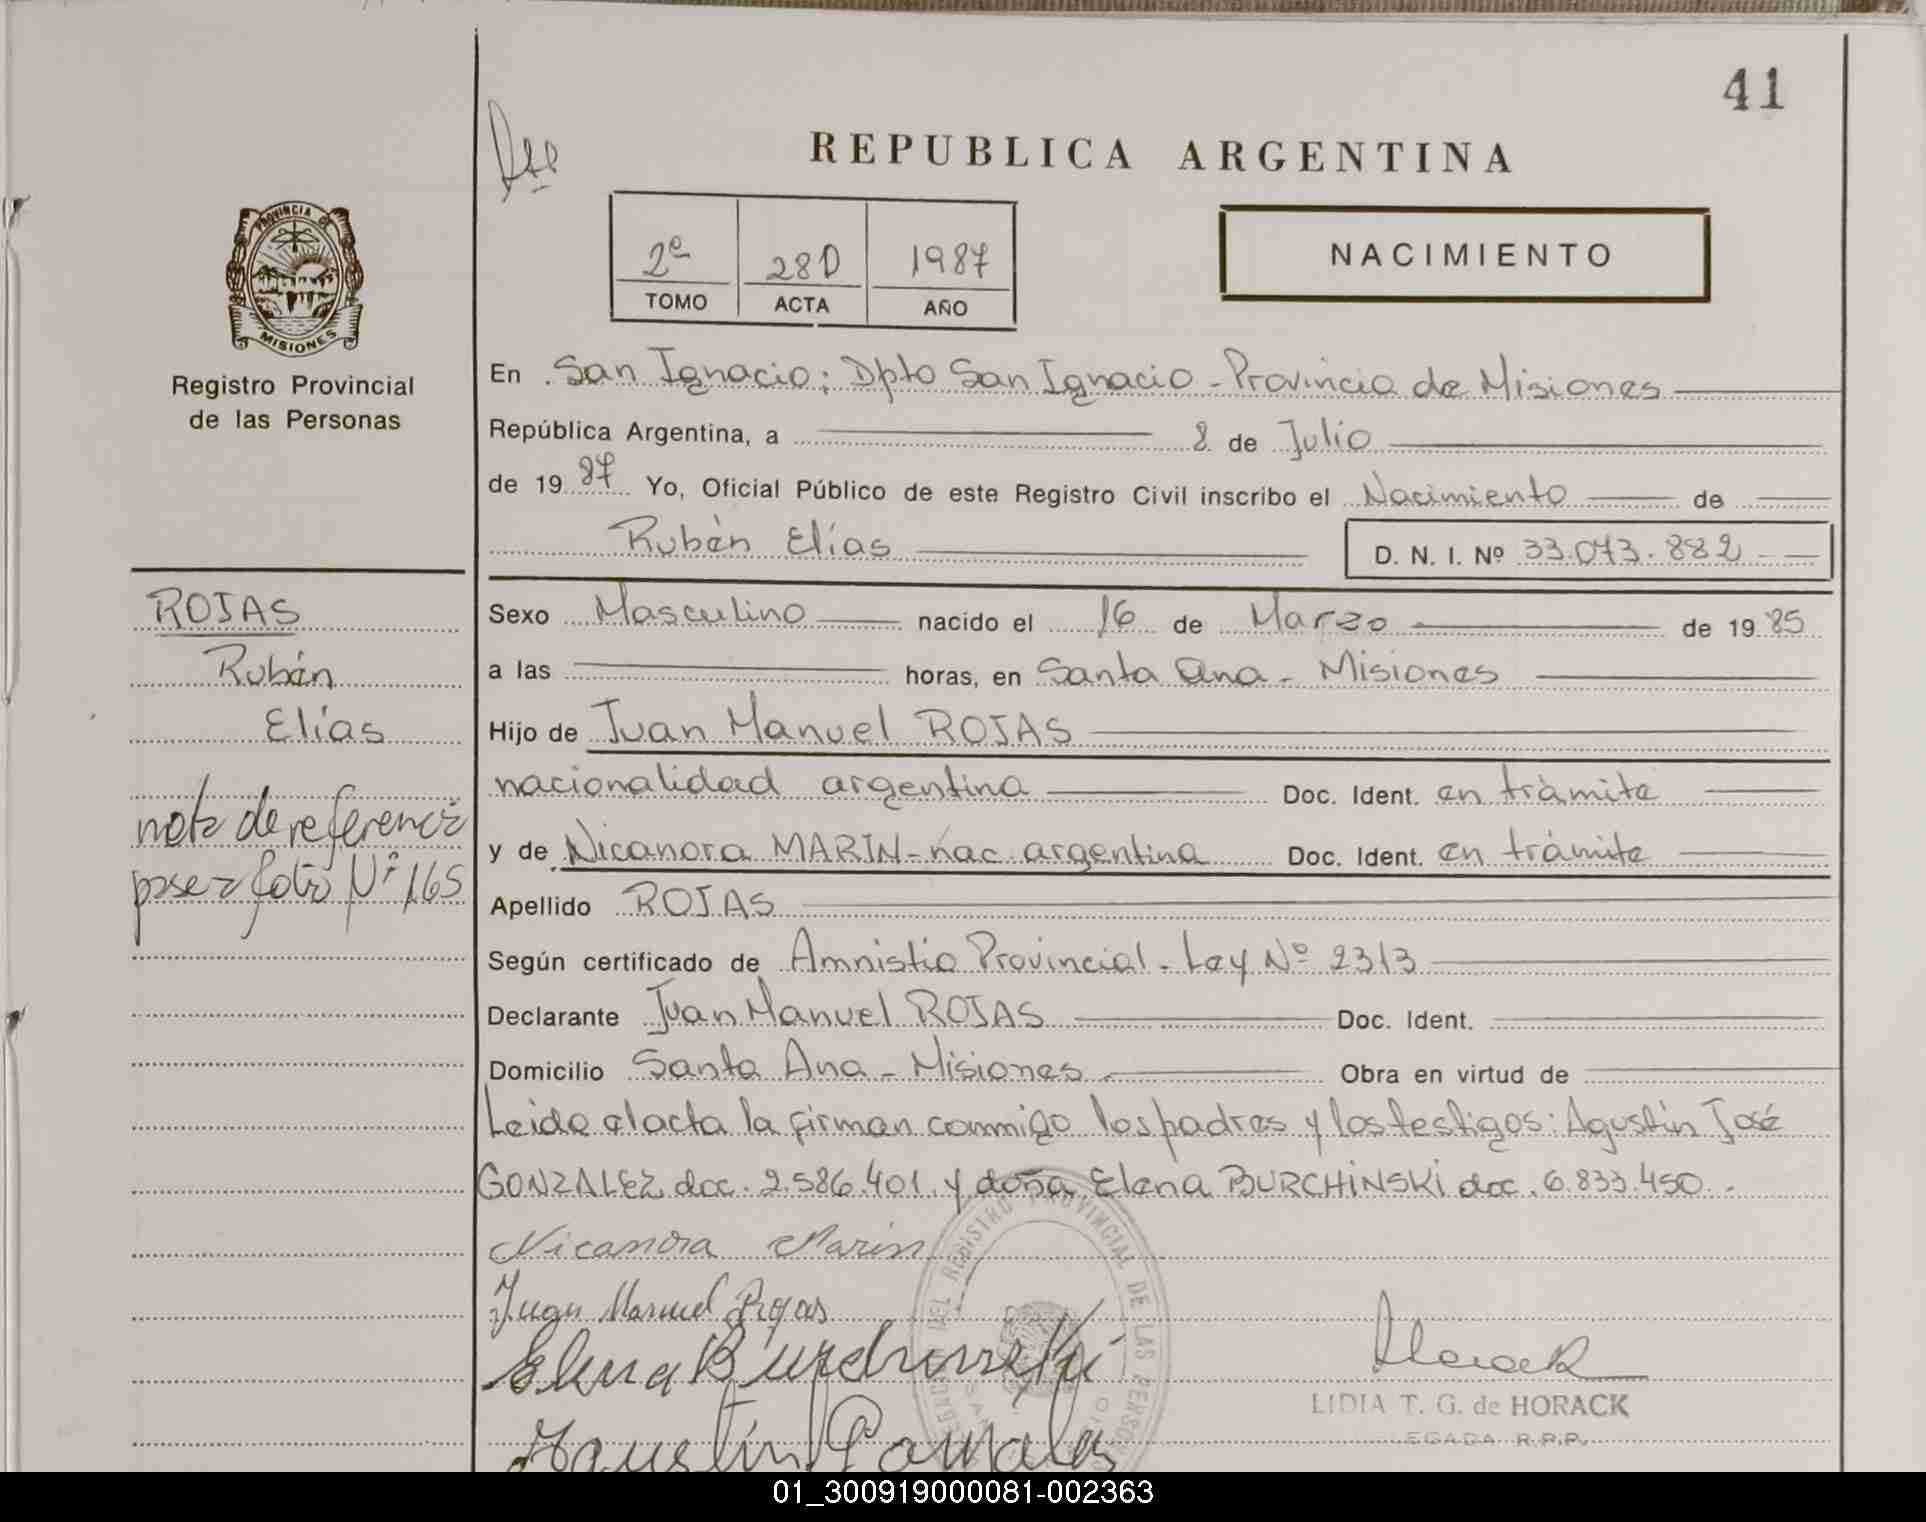 41
REPUBLICA ARGENTINA
2º 28D 1987
TOMO ACTA AÑO
NACIMIENTO
PROVINCIA DE
MISIONES
Registro Provincial
de las Personas
En San Ignacio; Dpto San Ignacio - Provincia de Misiones
República Argentina, a 8 de Julio
de 1987 Yo, Oficial Público de este Registro Civil inscribo el Nacimiento de
Rubén Elías D. N. I. Nº 33.073.882
ROJAS
Rubén
Elías
nota de referencia
pasa a folio Nº 165
Sexo Masculino nacido el 16 de Marzo de 1985
a las horas, en Santa Ana - Misiones
Hijo de Juan Manuel ROJAS
nacionalidad argentina Doc. Ident. en trámite
y de Nicanora MARIN - nac. argentina Doc. Ident. en trámite
Apellido ROJAS
Según certificado de Amnistia Provincial - Ley Nº 2313
Declarante Juan Manuel ROJAS Doc. Ident.
Domicilio Santa Ana - Misiones Obra en virtud de
Leida el acta la firman conmigo los padres y los testigos: Agustín José
GONZALEZ doc. 2.586.401 y doña Elena BURCHINSKI doc. 6.833.450 -
Nicanora Marin
Juan Manuel Rojas
Elena Burchinski
Agustín Gonzales
DEL REGISTRO PROVINCIAL DE LAS PERSON
Horack
LIDIA T. G. de HORACK
LEGADA R.P.P.
01_300919000081-002363